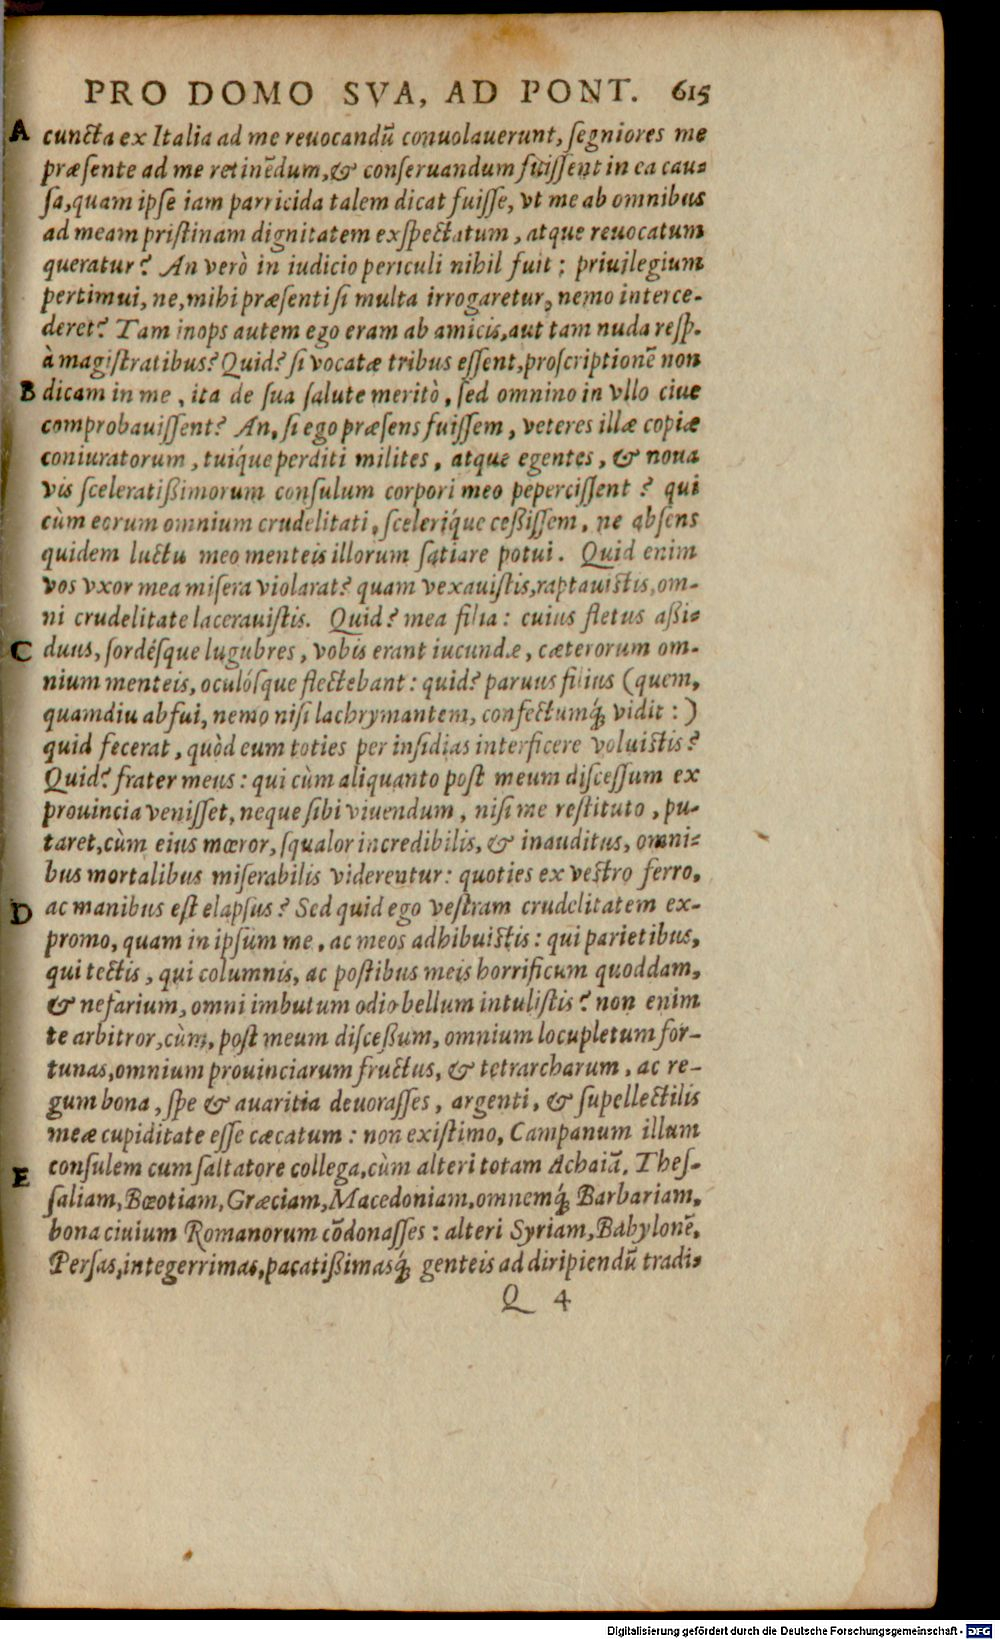 PRO DOMO SVA, AD PONT. 615
A cuncta ex Italia ad me reuocandū conuolauerunt, ſegniores me
præſente ad me retinēdum, & conſeruandum fuiſſent in ea cau-
ſa, quam ipſe iam parricida talem dicat fuiſſe, vt me ab omnibus
ad meam priſtinam dignitatem exſpectatum, atque reuocatum
queratur? An verò in iudicio periculi nihil fuit; priuilegium
pertimui, ne, mihi præſenti ſi multa irrogaretur, nemo interce-
deret? Tam inops autem ego eram ab amicis, aut tam nuda reſp.
à magiſtratibus? Quid? ſi vocatæ tribus eſſent, proſcriptionē non
B dicam in me, ita de ſua ſalute meritò, ſed omnino in vllo ciue
comprobauiſſent? An, ſi ego præſens fuiſſem, veteres illæ copiæ
coniuratorum, tuíque perditi milites, atque egentes, & noua
vis ſceleratißimorum conſulum corpori meo peperciſſent? qui
cùm eorum omnium crudelitati, ſceleríque ceßiſſem, ne abſens
quidem luctu meo menteis illorum ſatiare potui. Quid enim
vos vxor mea miſera violarat? quam vexauiſtis, raptauiſtis, om-
ni crudelitate lacerauiſtis. Quid? mea filia: cuius fletus aßi-
C duus, ſordéſque lugubres, vobis erant iucundæ, cæterorum om-
nium menteis, oculóſque flectebant: quid? paruus filius (quem,
quamdiu abfui, nemo niſi lachrymantem, confectumq́; vidit:)
quid fecerat, quòd eum toties per inſidias interficere voluiſtis?
Quid? frater meus: qui cùm aliquanto poſt meum diſceſſum ex
prouincia veniſſet, neque ſibi viuendum, niſi me reſtituto, pu-
taret, cùm eius mœror, ſqualor incredibilis, & inauditus, omni-
bus mortalibus miſerabilis viderentur: quoties ex veſtro ferro,
D ac manibus eſt elapſus? Sed quid ego veſtram crudelitatem ex-
promo, quam in ipſum me, ac meos adhibuiſtis: qui parietibus,
qui tectis, qui columnis, ac poſtibus meis horrificum quoddam,
& nefarium, omni imbutum odio bellum intuliſtis? non enim
te arbitror, cùm, poſt meum diſceßum, omnium locupletum for-
tunas, omnium prouinciarum fructus, & tetrarcharum, ac re-
gum bona, ſpe & auaritia deuoraſſes, argenti, & ſupellectilis
meæ cupiditate eſſe cæcatum: non exiſtimo, Campanum illum
E conſulem cum ſaltatore collega, cùm alteri totam Achaiā, Theſ-
ſaliam, Bœotiam, Græciam, Macedoniam, omnemq́; Barbariam,
bona ciuium Romanorum cōdonaſſes: alteri Syriam, Babylonē,
Perſas, integerrimas, pacatißimasq́; genteis ad diripiendū tradi-
Q 4
Digitalisierung gefördert durch die Deutsche Forschungsgemeinschaft - DFG